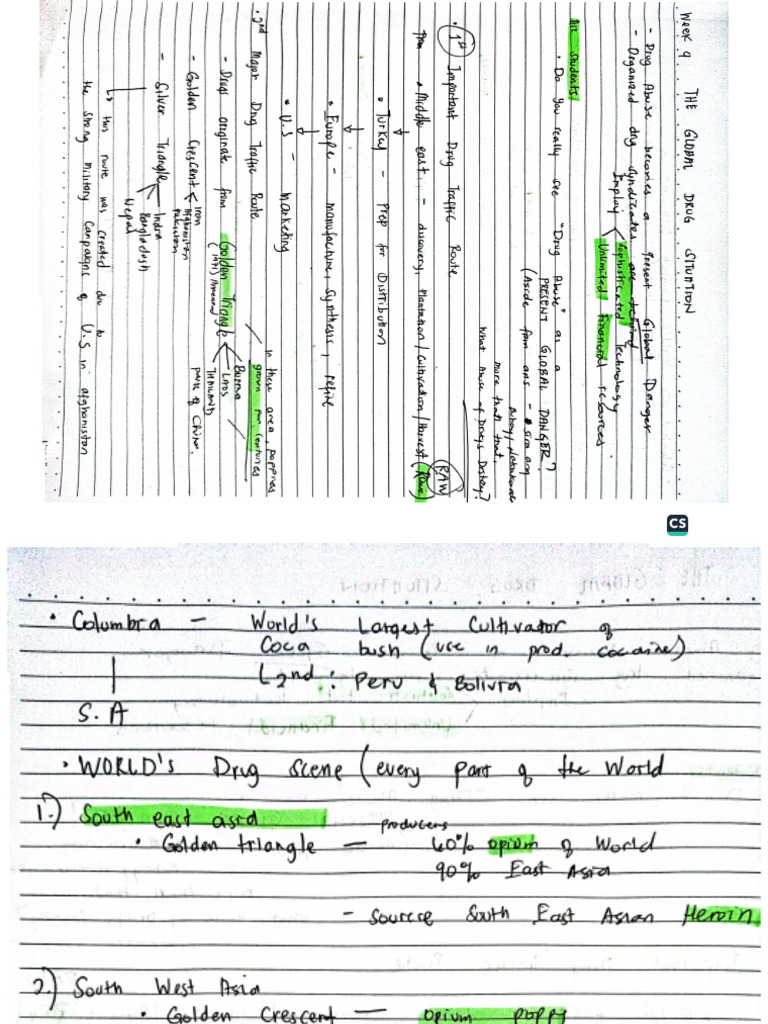 Week 9 THE GLOBAL DRUG SITUATION
- Drug Abuse becomes a present Global Danger
- Organized drug syndicates are behind
Employ Sophisticated Technology
Unlimited Financial resources.
Ask students!
• Do you really see "Drug Abuse" as a
PRESENT GLOBAL DANGER?
(Aside from ans -
more than that.
What kind of Drugs Destroy?
• 1st Important Drug Traffic Route
from • Middle east, - discovery, Plantation/Cultivation/Harvest (Raw) RAW
• Turkey - Prep for Distribution
• Europe - manufacture, synthesis, refine
• U.S - Marketing
• 2nd Major Drug Traffic Route
- Drugs originate from Golden Triangle
In these area, poppies
grown for centuries
Burma
LAOS
THAILAND
part of China.
- Golden Crescent Iran
Afghanistan
Pakistan
- Silver Triangle India
Bangladesh
Nepal
↳ this route was created due to
the strong Military Campaigns of U.S in afghanistan
CS
• Columbia - World's Largest Cultivator of
Coca bush (use in prod. cocaine)
L 2nd: Peru & Bolivia
S.A
• WORLD's Drug Scene (every part of the World
1.) South east asia
• Golden triangle - producers 60% opium of World
90% East Asia
- Source South East Asian Heroin
2.) South West Asia
• Golden Crescent - opium poppy